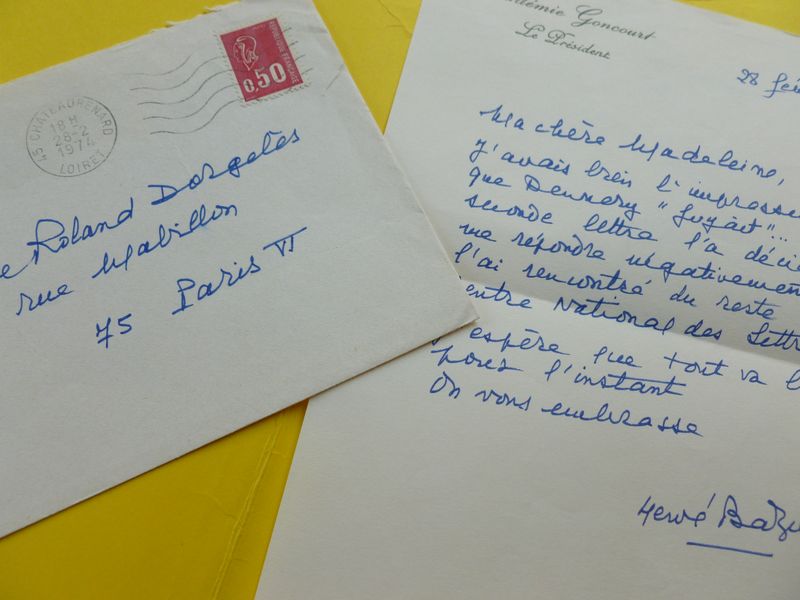 RÉPUBLIQUE FRANÇAISE
0,50
45 CHATEAURENARD
18 H
28-2
1974
LOIRET
e Roland Dorgelès
rue Mabillon
75 Paris VI
adémie Goncourt
Le Président
28 fév
Ma chère Madeleine,
J'avais bien l'impress
que Dennery "fuyait"...
seconde lettre l'a déci
me répondre négativemen
l'ai rencontré du reste
entre National des Lettr
J'espère que tout va b
pour l'instant
On vous embrasse
Hervé Bazin